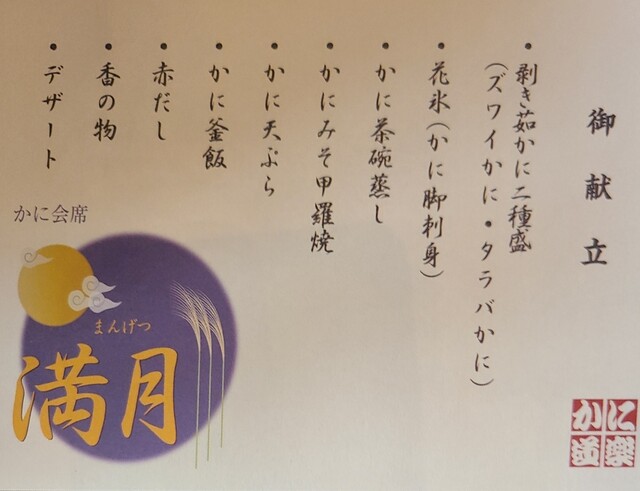 御献立
・剥き茹かに二種盛
(ズワイかに・タラバかに)
・花氷(かに脚刺身)
・かに茶碗蒸し
・かにみそ甲羅焼
・かに天ぷら
・かに釜飯
・赤だし
・香の物
・デザート
かに会席
まんげつ
満月
かに道楽